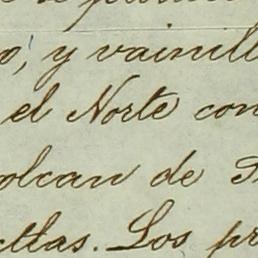 o, y vainill
el Norte con
olcan de
tlas. Los pr